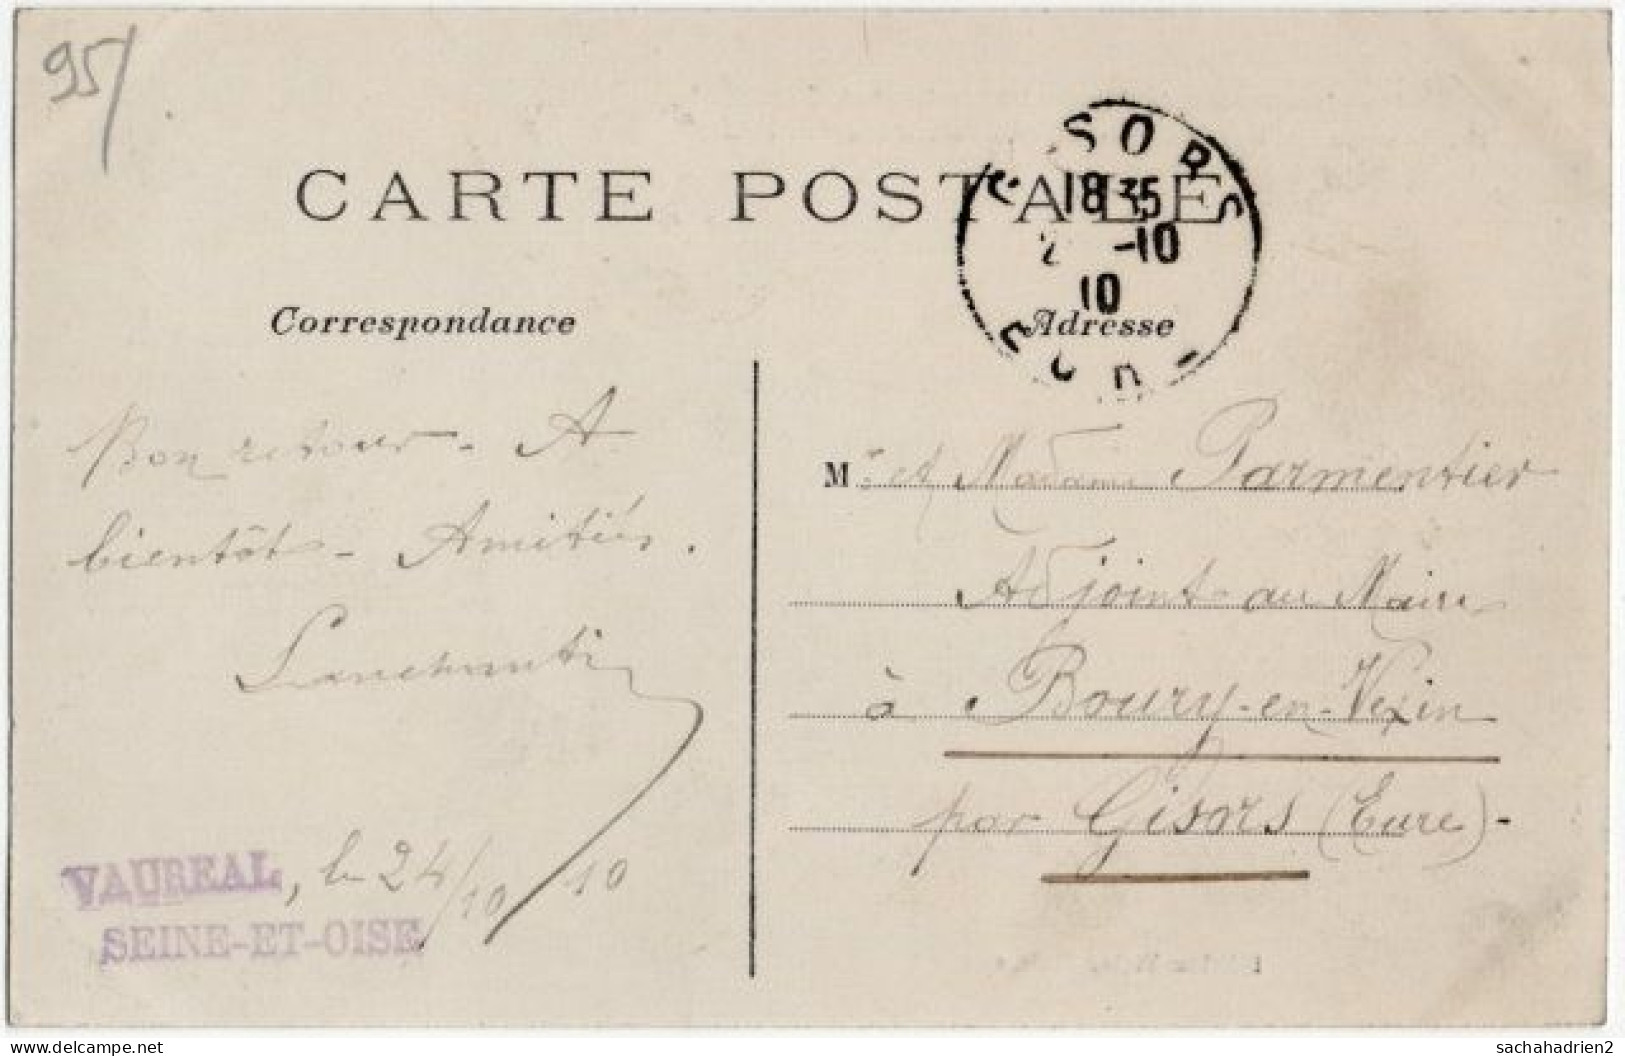 95/
CARTE POSTALE
SORS
18 35
2 -10
10
Correspondance
Adresse
Bon retour - A
bientôt - Amitiés.
VAUREAL, le 24/10/10
SEINE-ET-OISE
Mr et Madame Parmentier
Adjoint au Maire
à Boury-en-Vexin
par Gisors (Eure)-
delcampe.net
sachahadrien2